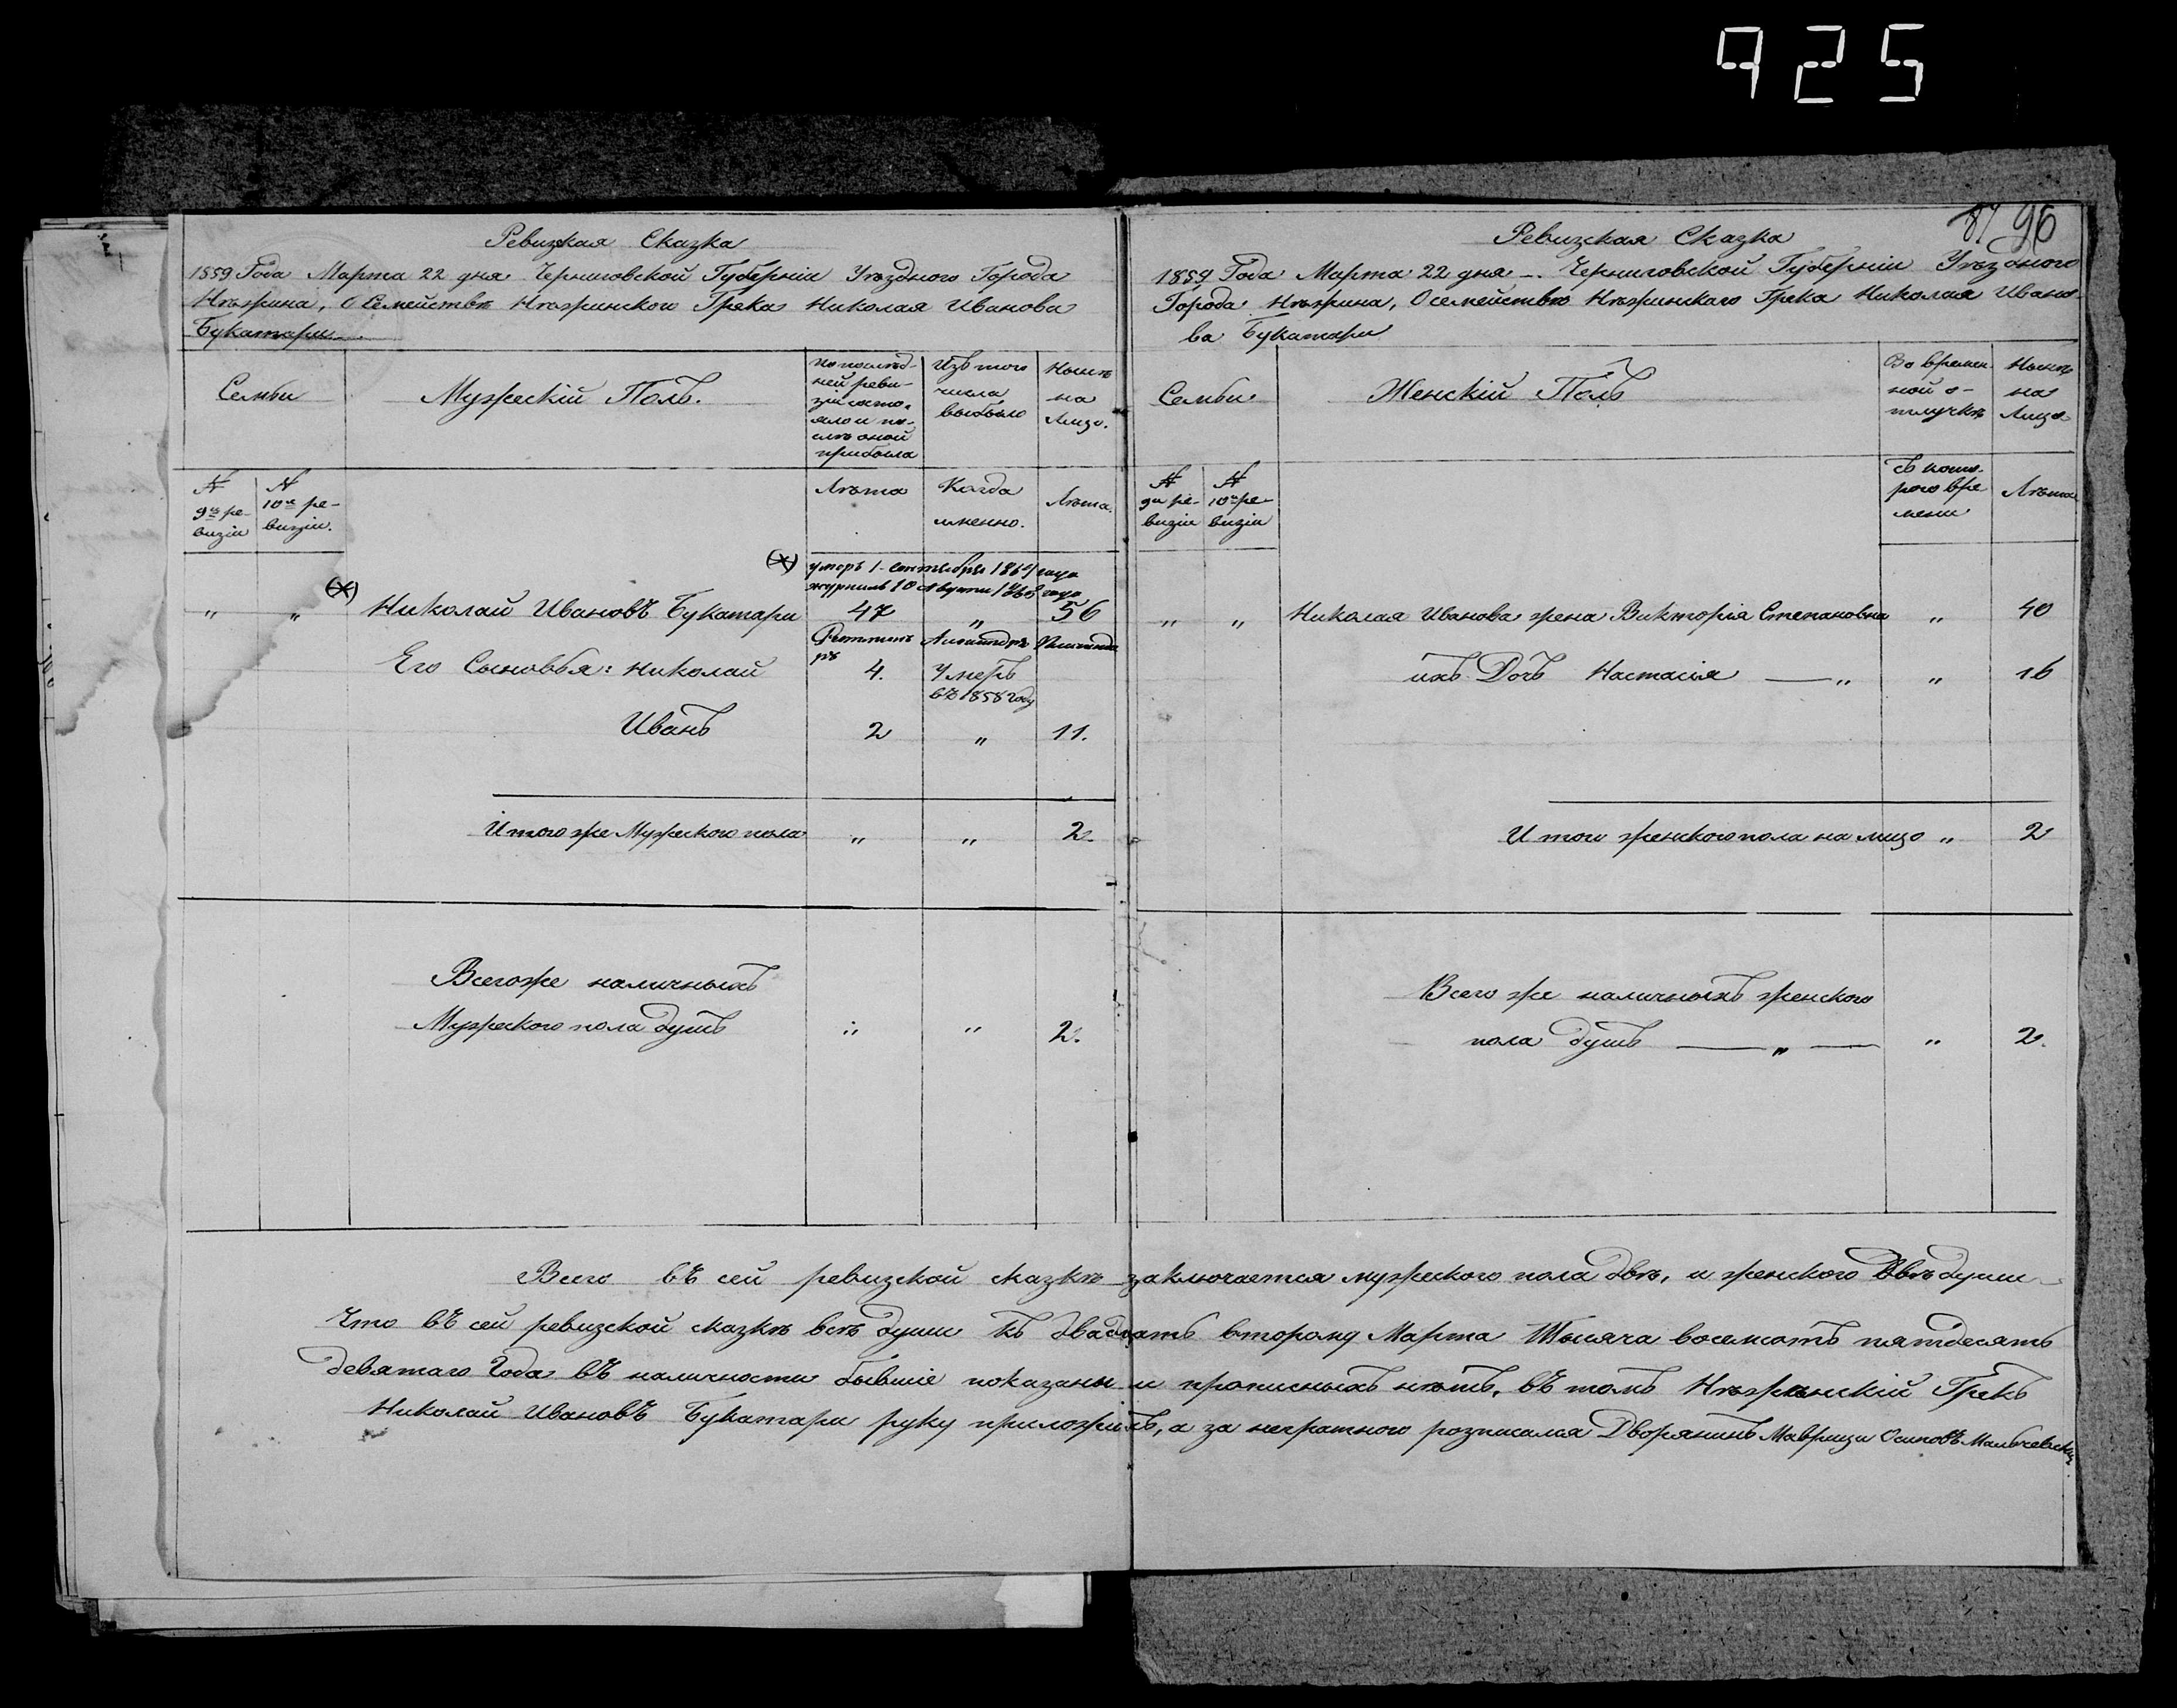 925
87 96
Ревизкая Сказка
1859 Года Марта 22 дня Черниговской Губерніи Уѣздного Города
Нѣжина, О Семействѣ Нѣжинского Грека Николая Иванова
Букатари
Семьи
Мужескій Полъ.
По послѣд-
ней реви-
зіи состо-
яло и по-
слѣ оной
прибыло
Изъ того
числа
выбыло
Нынѣ
на
Лицо.
№
9й ре-
визіи
№
10й ре-
визіи.
Лѣта
Когда
именно.
Лѣта.
(Х) умеръ 1 сентября года
журналъ 10 Августа года
(Х)
" " Николай Ивановъ Букатари 47 " 56
Его Сыновья: Николай 4. Умеръ
въ 1858 году
Иванъ 2 " 11.
Итого же Мужеского пола " " 2.
Всего же наличныхъ
Мужеского пола душъ " " 2.
Ревизская Сказка
1859 Года Марта 22 дня -. Черниговской Губерніи Уѣздного
Города Нѣжина, О семействѣ Нѣжинскаго Грека Николая Ивано-
ва Букатари
Семьи
Женскій Полъ
Во времен-
ной о-
тлучкѣ
Нынѣ
на
Лицо
№
9й ре-
визіи
№
10й ре-
визіи
Съ кото-
рого вре
мени
Лѣта
" " Николая Иванова жена Викторія Степановна " 40
ихъ Дочь Настасія — " " 16
Итого женского пола на лицо " 2
Всего же наличныхъ женского
пола душъ — " — " 2.
Всего въ сей ревизской сказкѣ заключается мужеского пола двѣ, и женского двѣ души
Что въ сей ревизской сказкѣ всѣ души къ двадцать второму Марта Тысяча восемотъ пятдесятъ
девятаго Года въ наличности бывшіе показаны и прописныхъ нѣтъ, въ томъ Нѣжинскій Грекъ
Николай Ивановъ Букатари руку приложилъ, а за неграмотного розписался Дворянинъ Маврици Осиповъ Мальчевскій.